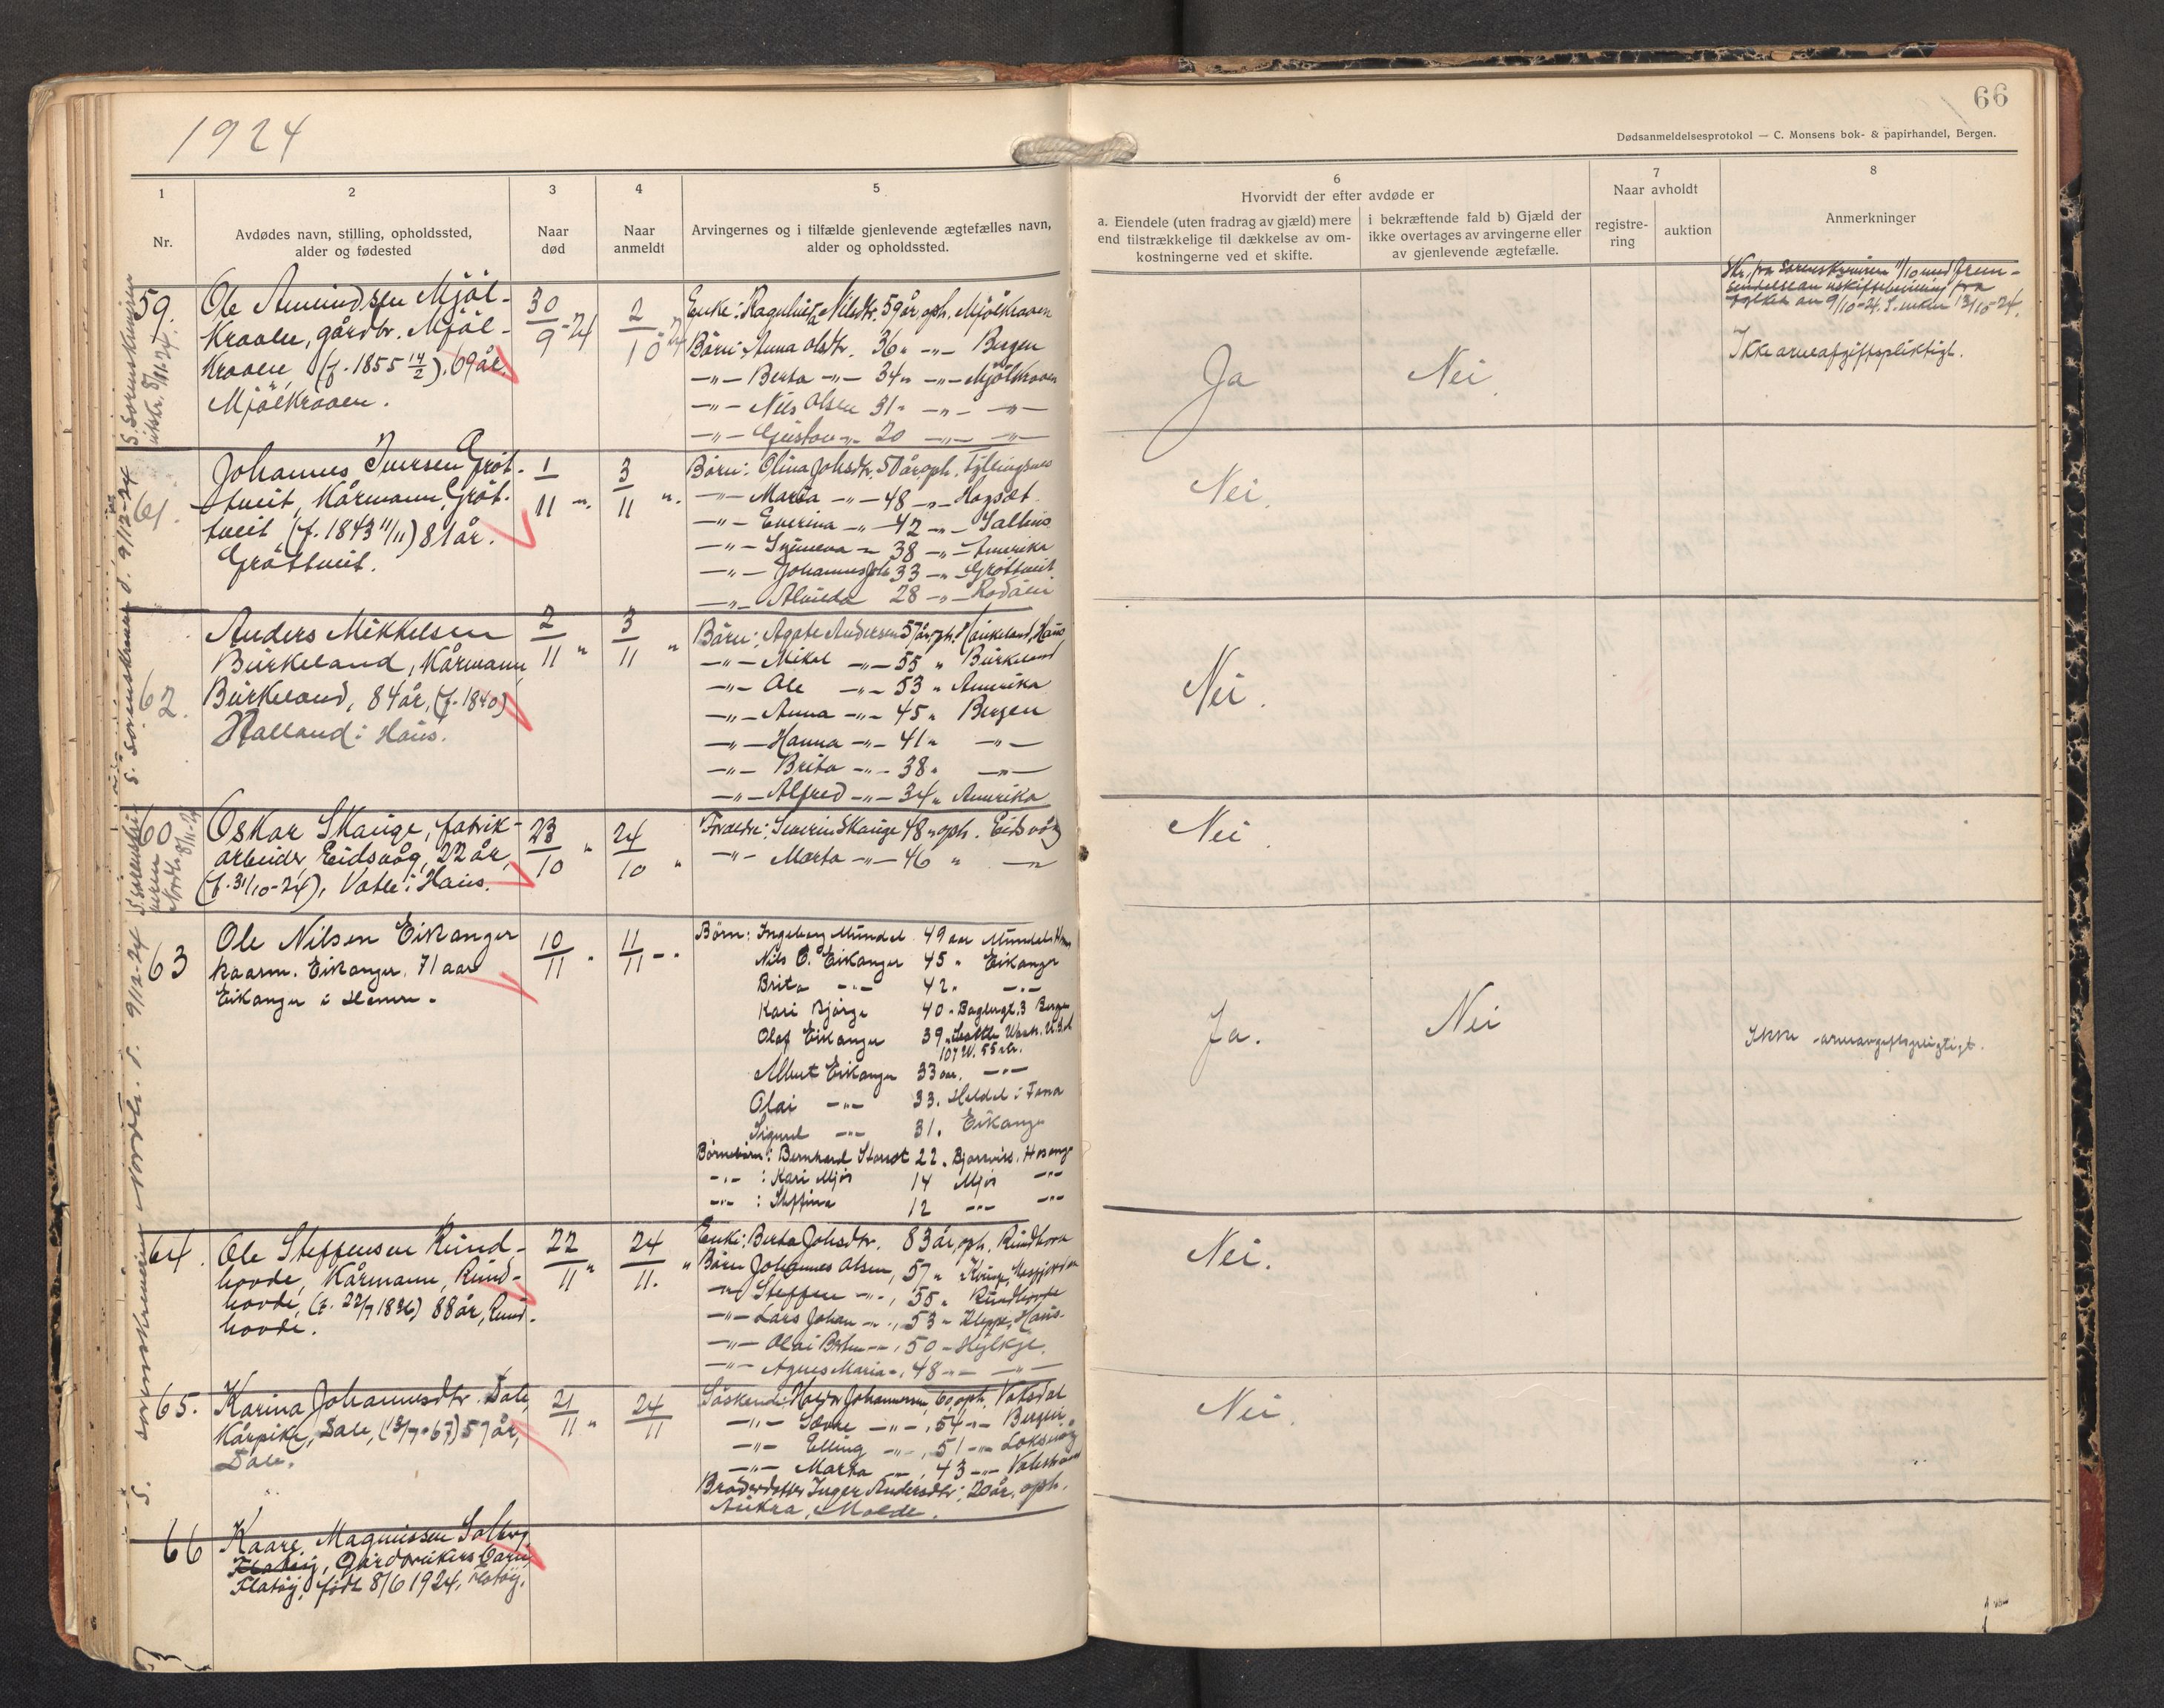 1924
66
Dødsanmeldelsesprotokol — C. Monsens bok- & papirhandel, Bergen.
1
2
3
4
5
6
7
8
Nr.
Avdødes navn, stilling, opholdssted,
alder og fødested
Naar
død
Naar
anmeldt
Arvingernes og i tilfælde gjenlevende ægtefælles navn,
alder og opholdssted.
Hvorvidt der efter avdøde er
a. Eiendele (uten fradrag av gjæld) mere
end tilstrækkelige til dækkelse av om-
kostningerne ved et skifte.
i bekræftende fald b) Gjæld der
ikke overtages av arvingerne eller
av gjenlevende ægtefælle.
Naar avholdt
registre-
ring
auktion
Anmerkninger
59.
Ole Amundsen Mjöl-
kraaen, gårdbr. Mjöl-
kraaen, (f. 1855 14/2), 69 år,
Mjölkraaen.
30/9-24
2/10 24
Enke: Ragnhild Nilsdtr. 59 år, oph. Mjölkraaen
Börn: Anna Olsdtr. 36 " -"- Bergen
-"- Berta -"- 34 " -"- Mjölkraaen
-"- Nils Olsen 31 " -"- -"-
-"- Gustav -"- 20 -"- -"-
Ja
Nei
Ikke arveafgiftspliktigt.
61.
Johannes Iversen Gröt-
tveit, Kårmann, Gröt-
tveit, (f. 1843 11/11) 81 år.
Gröttveit.
1/11 "
3/11 "
Börn: Olina Johsdtr. 50 år, oph. Fyllingsnes
-"- Maria -"- 48 -"- Hopsdt
-"- Everina -"- 42 -"-
-"- Synneva -"- 38 -"- Amerika
-"- Johannes Joh. 33 -"- Gröttveit
-"- Alvilda 28 -"-
Nei.
62.
Anders Mikkelsen
Burkeland, Kårmann
Burkeland, 84 år, (f. 1840)
Halland i Haus.
2/11 "
3/11 "
Börn: Agate Andersen 57 år, oph. Haukeland, Haus
-"- Mikal -"- 55 " Burkeland
-"- Ole -"- 53 " Amerika
-"- Anna -"- 45 " Bergen
-"- Hanna -"- 41 " -"-
-"- Brita -"- 38 " -"-
-"- Alfred -"- 34 " Amerika
Nei.
60
Oskar Skauge, fabrik-
arbeider, Eidsvåg, 22 år,
(f. 31/10-24), Vatle i Haus.
23/10 "
24/10 "
Foreldre: Severin Skauge 48 " oph. Eidsvåg
-"- Marta -"- 46 " -"-
Nei
63
Ole Nilsen Eikanger
kaarm. Eikanger, 71 aar
Eikanger i Hamre.
10/11 "
11/11 - "
Børn: Ingeborg Mundal 49 aar Mundal
Nils O. Eikanger 45 " Eikanger
Brita -"- 42 " -"-
Kari Bjørge 40 " 3 Bergen
Olaf Eikanger 39 " Seattle Wash. U.S.A
107 W. 55 str.
Albert Eikanger 33 aar. -"-
Olai -"- 33. Heldal i Fana
Sigurd -"- 31. Eikanger
Børnebørn: Bernhard 22 .
-"- : Kari Mjøs 14 Mjøs -"-
-"- : Steffina 12 -"- -"-
Ja.
Nei
Ikke arveavgiftspligtigt.
64.
Ole Steffensen Rund-
hovde, Kårmann, Rund-
hovde, (f. 22/7 1836) 88 år, Rund-
hovde.
22/11 "
24/11. "
Enke: Berta Johsdtr. 83 år, oph. Rundhovde
Börn Johannes Olsen, 57 "
-"- Steffen -"-, 55 " Rundhovde
-"- Lars Johan -"-, 53 " Kleppe, Haus.
-"- Olai -"-, 50 - Hylkje.
-"- Agnes Maria -"-, 48 -"- -"-
Nei.
65.
Karina Johannesdtr. Dale
Kårpike, Dale, 57 år,
Dale.
21/11 "
24/11
Söskende: Johannesen, 60, oph. Vaksdal
-"- -"-, 54 -"- Bergen.
-"- Elling -"-, 51 -"-
-"- Marta -"-, 43 -"-
Broderdatter Inger Andersdtr., 20 år, oph.
Aukra, Molde.
Nei.
66
Kaare Magnussen Solberg,
Flatöy, Gårdbrukers barn,
Flatöy, født 8/6 1924, Flatöy.